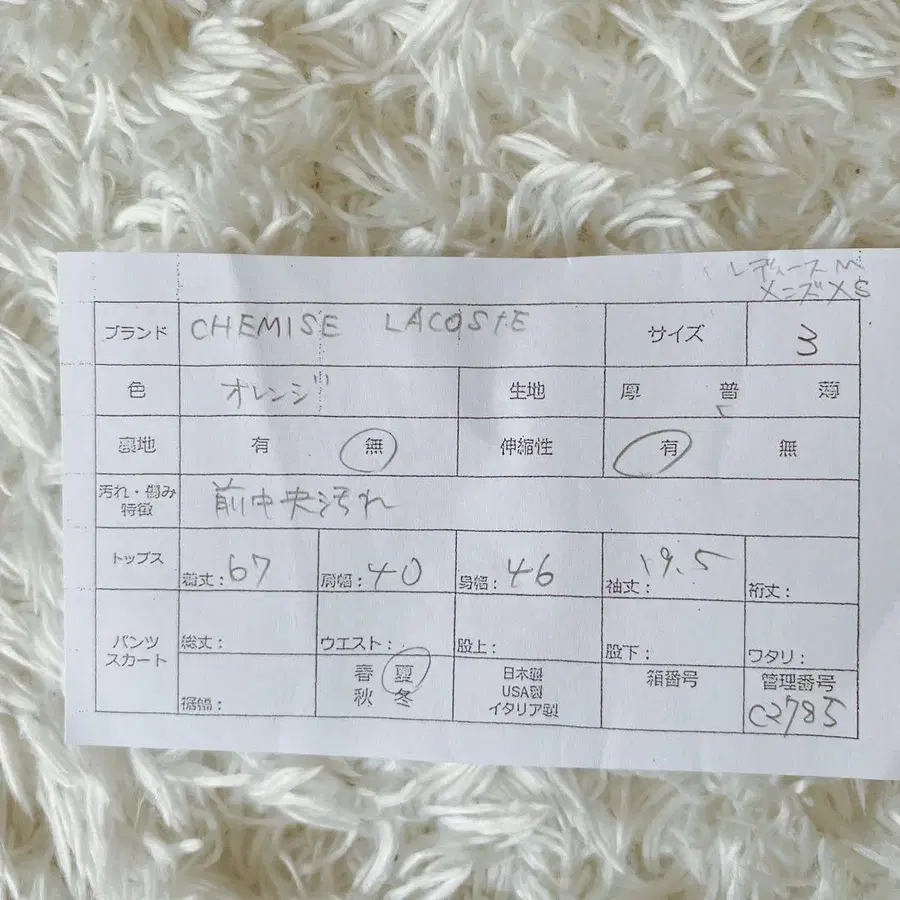 レディースM
メンズXS
ブランド CHEMISE LACOSTE サイズ 3
色 オレンジ 生地 厚 普 薄
裏地 有 無 伸縮性 有 無
汚れ・傷み
特徴 前中央汚れ
トップス 着丈:67 肩幅:40 身幅:46 袖丈:19.5 裄丈:
パンツ
スカート 総丈: ウエスト: 股上: 股下: ワタリ:
裾幅: 春 夏
秋 冬 日本製
USA製
イタリア製 箱番号 管理番号
C2785